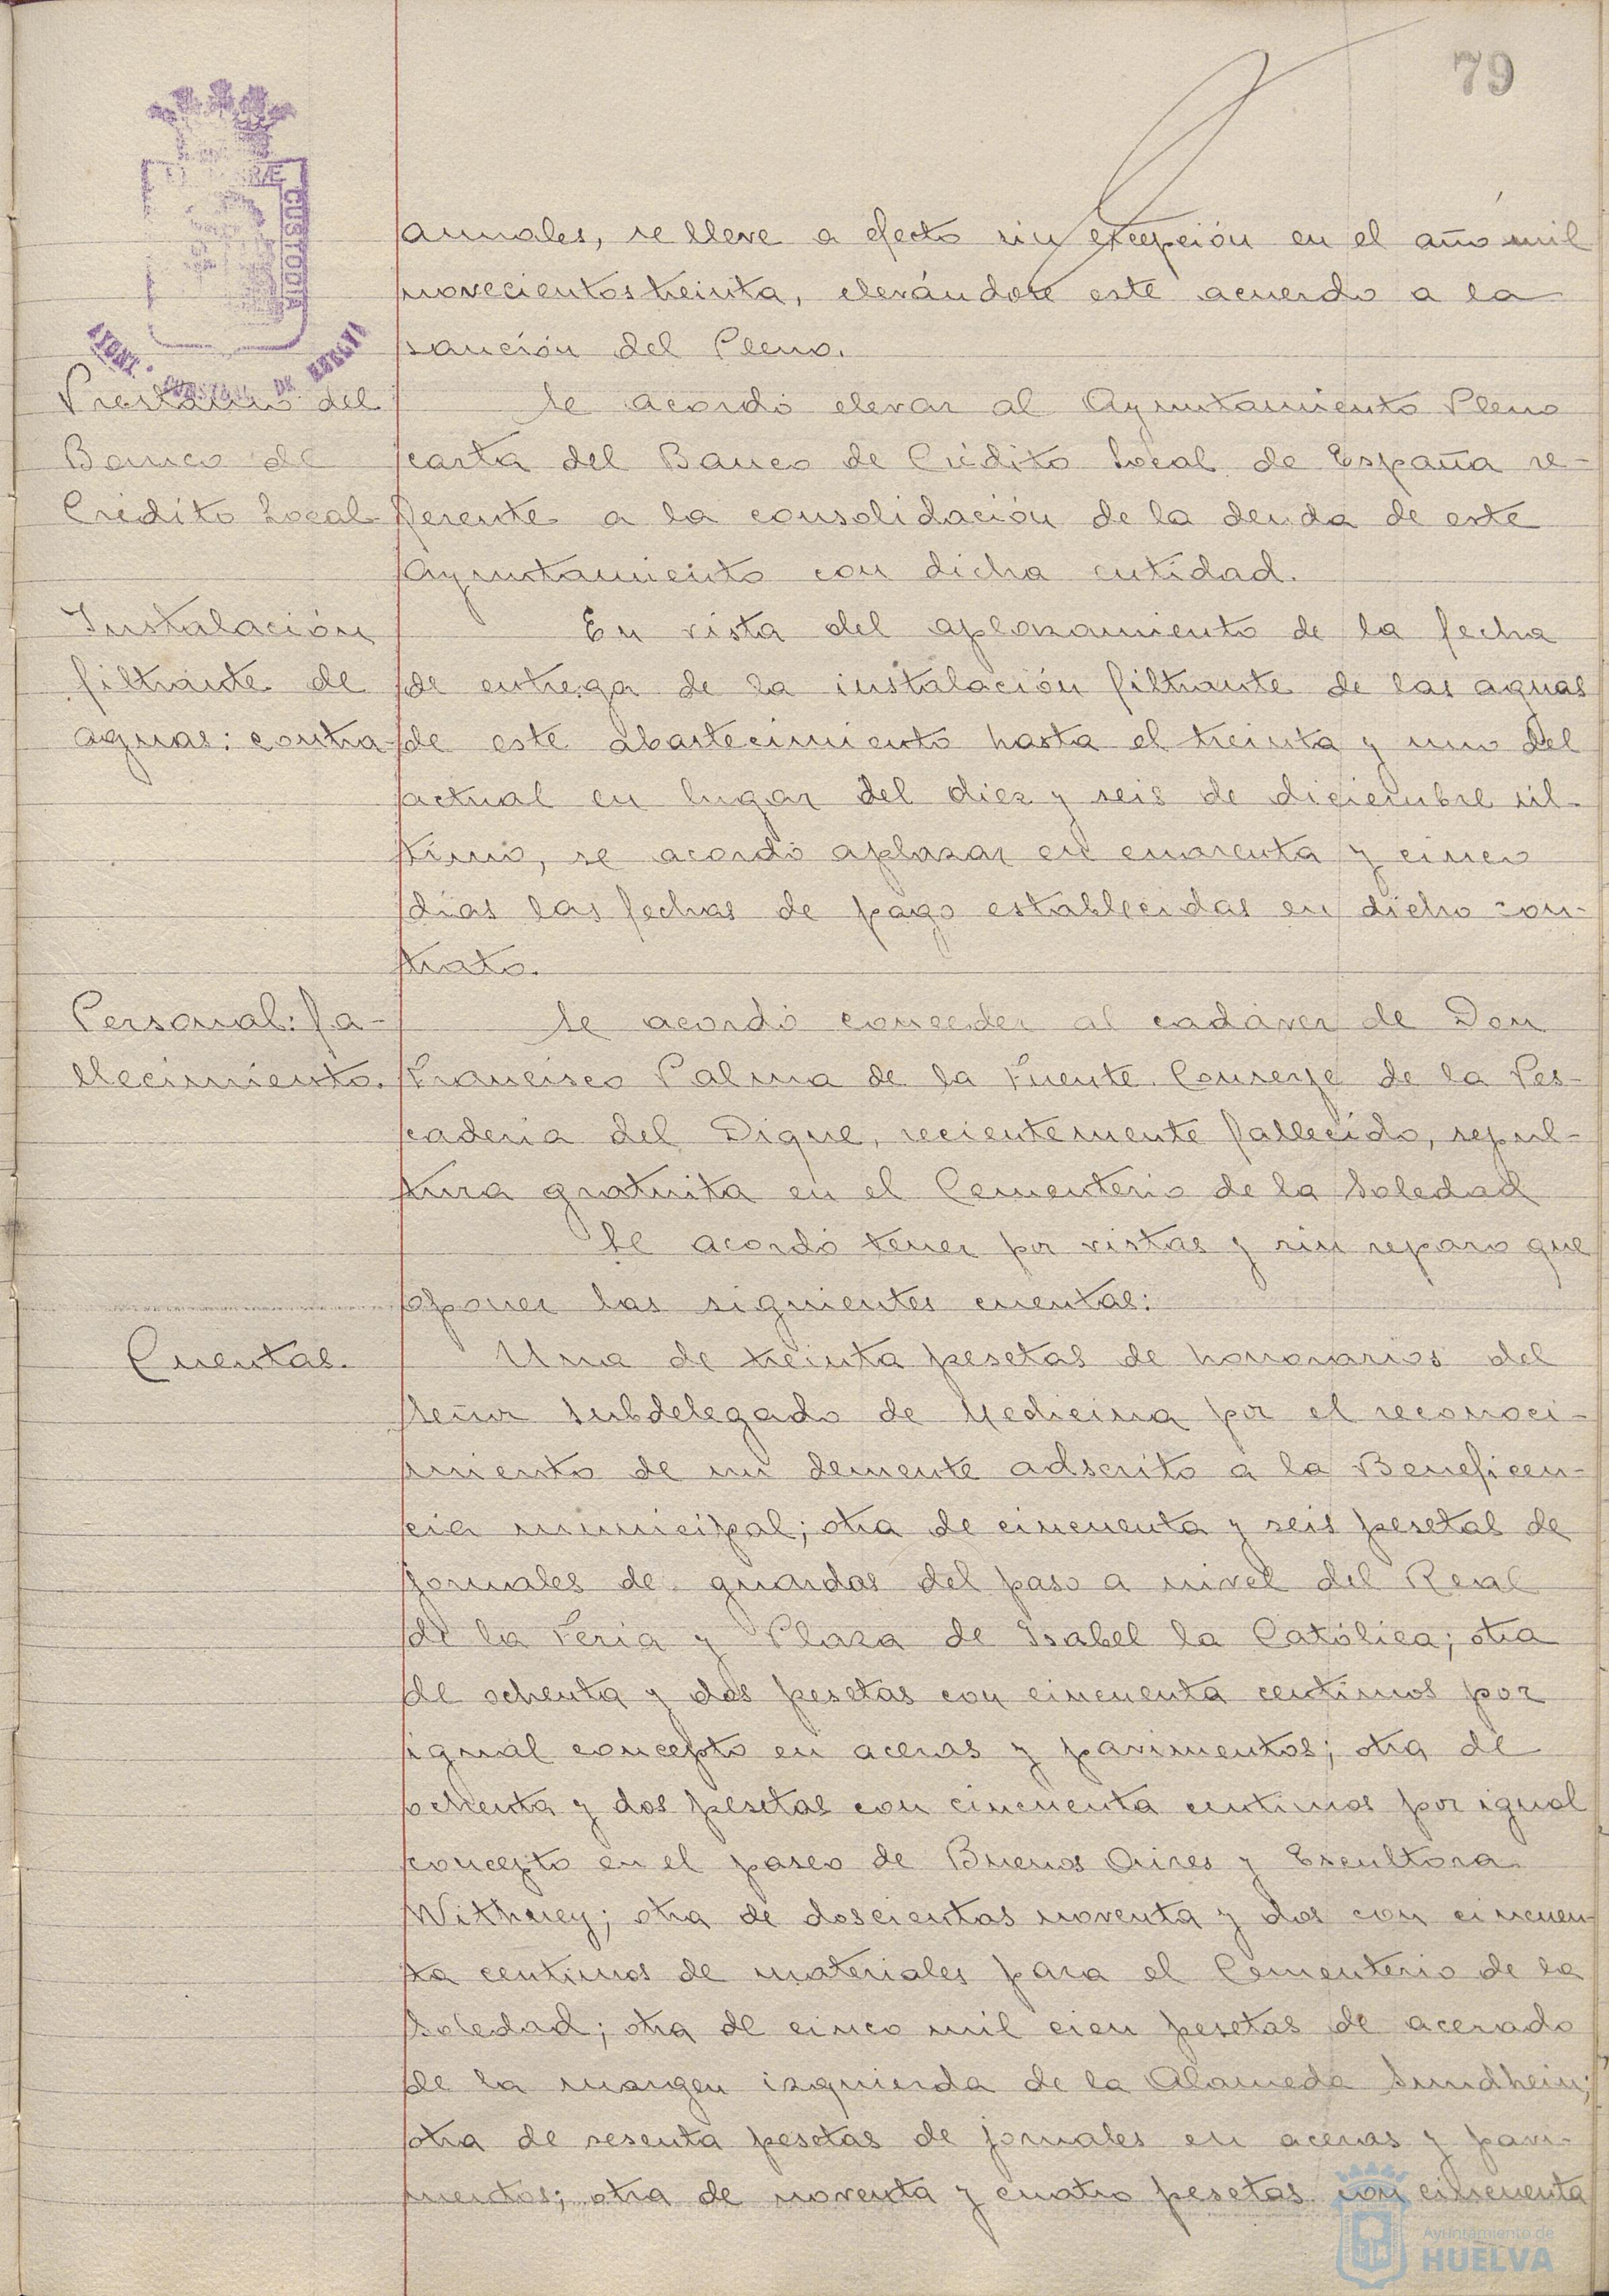 79
PORTUS MARIS ET TERRÆ CUSTODIA
AYUNT. CONSTNAL DE HUELVA
anuales, se lleve a efecto sin excepción en el año mil
novecientos treinta, elevándose este acuerdo a la
sanción del Pleno.
Prestamo del
Banco de
Crédito Local
Se acordó elevar al Ayuntamiento Pleno
carta del Banco de Crédito Local de España re-
ferente a la consolidación de la deuda de este
Ayuntamiento con dicha entidad.
Instalación
filtrante de
aguas: contra-
En vista del aplazamiento de la fecha
de entrega de la instalación filtrante de las aguas
de este abastecimiento hasta el treinta y uno del
actual en lugar del diez y seis de diciembre úl-
timo, se acordó aplazar en cuarenta y cinco
días las fechas de pago establecidas en dicho con-
trato.
Personal: fa-
llecimiento.
Se acordó conceder al cadáver de Don
Francisco Palma de la Fuente Conserje de la Pes-
cadería del Dique, recientemente fallecido, sepul-
tura gratuita en el Cementerio de la Soledad
Se acordó tener por vistas y sin reparo que
oponer las siguientes cuentas:
Cuentas.
Una de treinta pesetas de honorarios del
Señor Subdelegado de Medicina por el reconoci-
miento de un demente adscrito a la Beneficen-
cia municipal; otra de cincuenta y seis pesetas de
jornales de guardas del paso a nivel del Real
de la Feria y Plaza de Isabel la Católica; otra
de ochenta y dos pesetas con cincuenta centimos por
igual concepto en aceras y pavimentos; otra de
ochenta y dos pesetas con cincuenta centimos por igual
concepto en el paseo de Buenos Aires y Escultora
Withney; otra de doscientas noventa y dos con cincuen-
ta centimos de materiales para el Cementerio de la
Soledad; otra de cinco mil cien pesetas de acerado
de la margen izquierda de la Alameda Sundhein;
otra de sesenta pesetas de jornales en aceras y pavi-
mentos; otra de noventa y cuatro pesetas con cincuenta
Ayuntamiento de
HUELVA